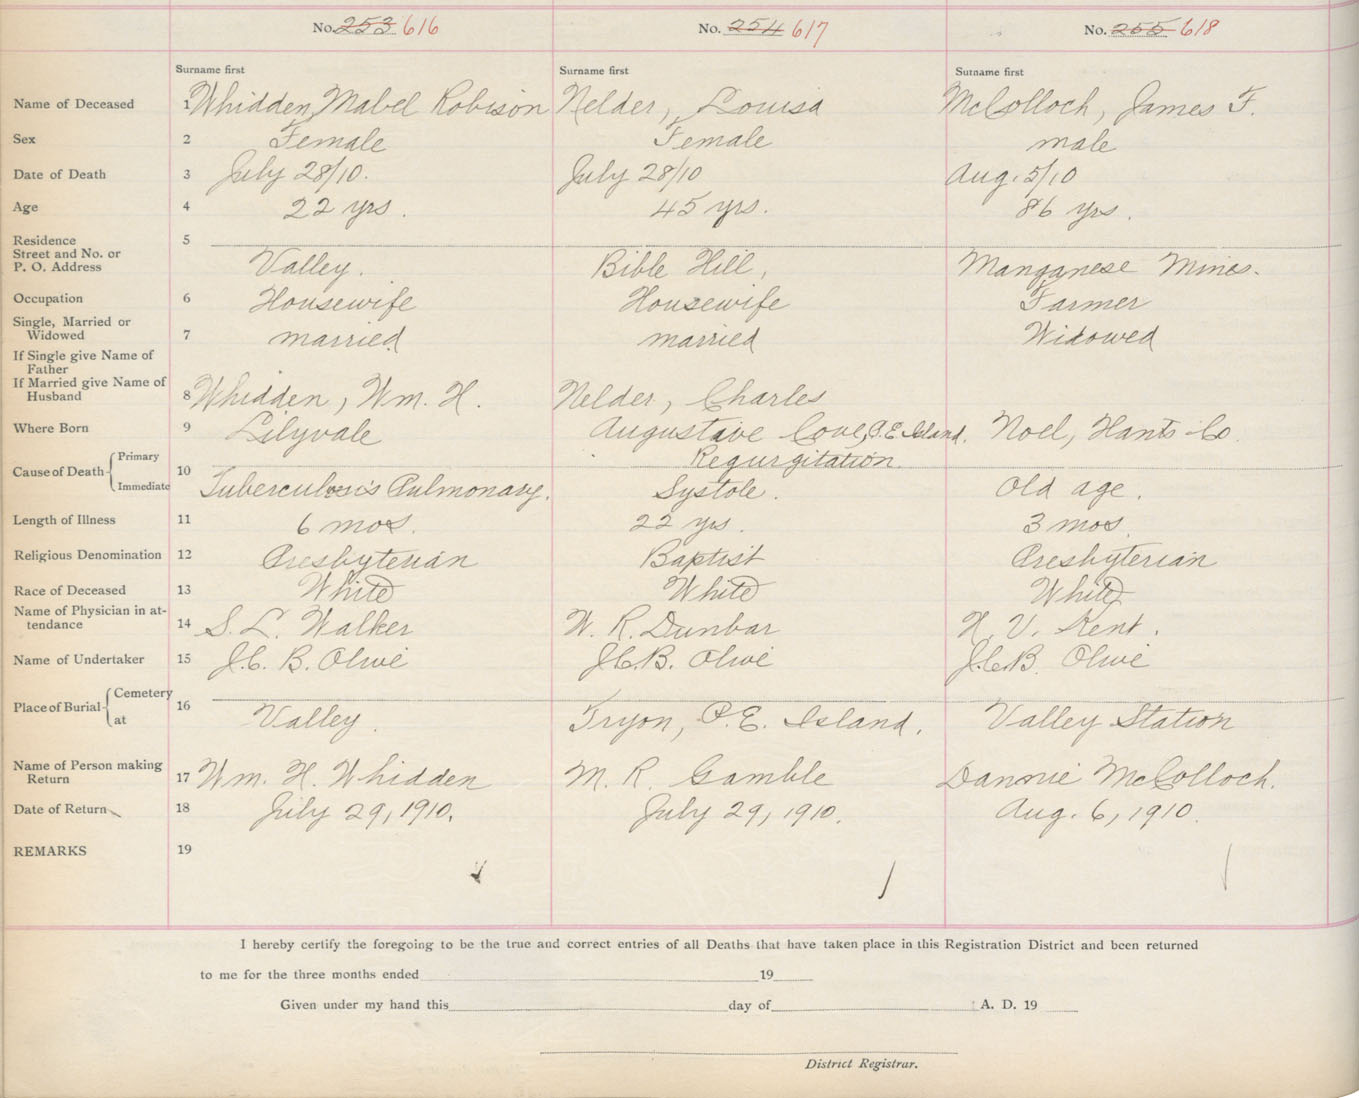 No. 253 616 No. 254 617 No. 255 618
Surname first Surname first Surname first
Name of Deceased 1 Whidden, Mabel Robison Nelder, Louisa McColloch, James F.
Sex 2 Female Female male
Date of Death 3 July 28/10. July 28/10 Aug. 5/10
Age 4 22 yrs. 45 yrs. 86 yrs.
Residence 5
Street and No. or
P. O. Address Valley. Bible Hill, Manganese Mines.
Occupation 6 Housewife Housewife Farmer
Single, Married or
Widowed 7 married married Widowed
If Single give Name of
Father
If Married give Name of
Husband 8 Whidden, Wm. H. Nelder, Charles
Where Born 9 Lilyvale Augustave Cove, P.E. Island. Noel, Hants Co.
Cause of Death Primary 10 Regurgitation
Immediate Tuberculosis Pulmonary. Systole. Old age.
Length of Illness 11 6 mos. 22 yrs. 3 mos.
Religious Denomination 12 Presbyterian Baptist Presbyterian
Race of Deceased 13 White White White
Name of Physician in at-
tendance 14 S. L. Walker W. R. Dunbar H. V. Kent.
Name of Undertaker 15 J. C. B. Olive J.C.B. Olive J.C.B. Olive
Place of Burial Cemetery 16
at Valley. Tryon, P.E. Island. Valley Station
Name of Person making
Return 17 Wm. H. Whidden M. R. Gamble Dannie McColloch.
Date of Return 18 July 29, 1910. July 29, 1910. Aug. 6, 1910.
REMARKS 19
I hereby certify the foregoing to be the true and correct entries of all Deaths that have taken place in this Registration District and been returned
to me for the three months ended 19
Given under my hand this day of A. D. 19
District Registrar.